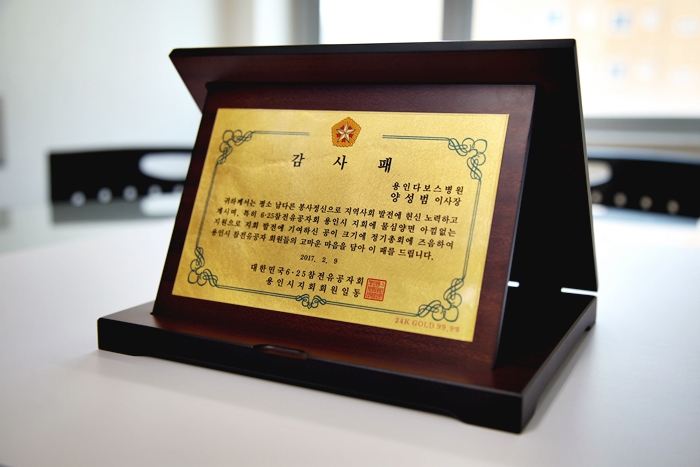 감 사 패
용인다보스병원
양성범 이사장
귀하께서는 평소 남다른 봉사정신으로 지역사회 발전에 헌신 노력하고
계시며, 특히 6·25참전유공자회 용인시 지회에 물심양면 아낌없는
지원으로 지회 발전에 기여하신 공이 크기에 정기총회에 즈음하여
용인시 참전유공자 회원들의 고마운 마음을 담아 이 패를 드립니다.
2017. 2. 9
대한민국6·25참전유공자회
용인시지회회원일동
24K GOLD 99.9%